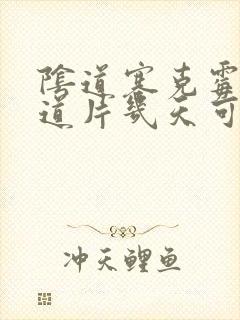 陰道塞克霉
道片幾天可
冲天鲤鱼